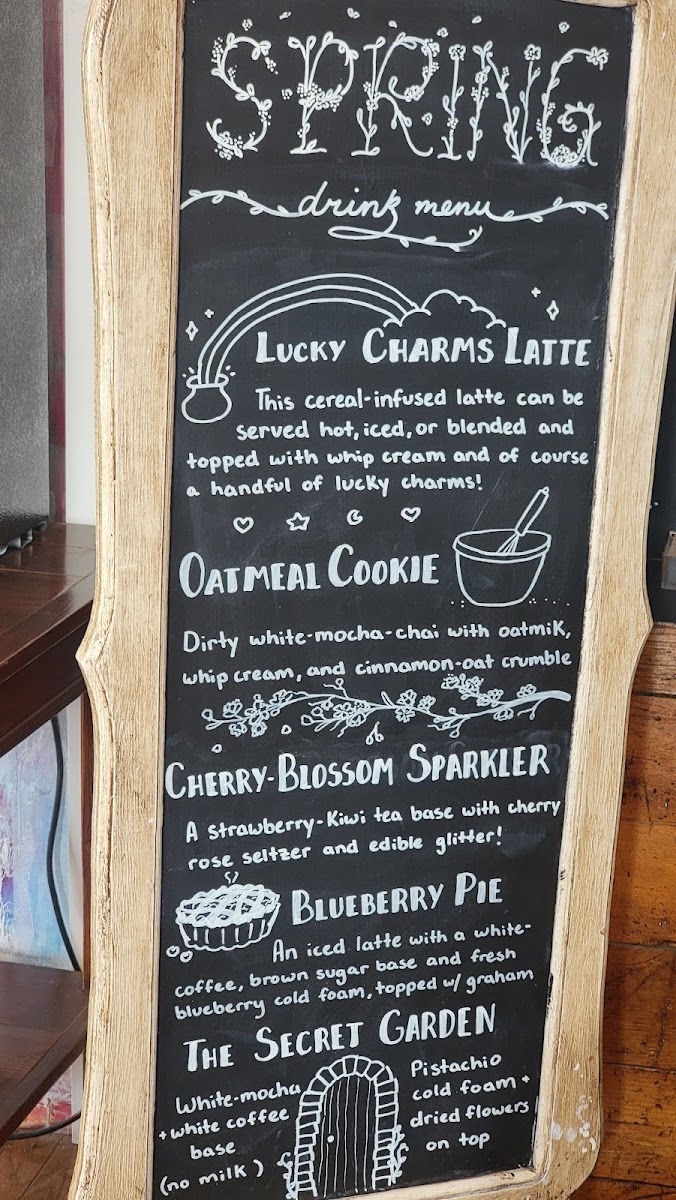 SPRING
drink menu
LUCKY CHARMS LATTE
This cereal-infused latte can be
served hot, iced, or blended and
topped with whip cream and of course
a handful of lucky charms!
OATMEAL COOKIE
Dirty white-mocha-chai with oatmilk,
whip cream, and cinnamon-oat crumble
CHERRY-BLOSSOM SPARKLER
A strawberry-kiwi tea base with cherry
rose seltzer and edible glitter!
BLUEBERRY PIE
An iced latte with a white-
coffee, brown sugar base and fresh
blueberry cold foam, topped w/ graham
THE SECRET GARDEN
White-mocha
+ white coffee
base
(no milk)
Pistachio
cold foam +
dried flowers
on top